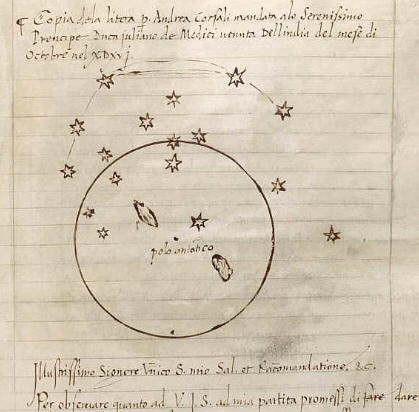 Copia della litera p. Andrea Corsali mandata alo Serenissimo
Prencipe Duca Juliano de Medici venuta Dellindia del mese di
Octobre nel XDXVJ.
polo antartico
Illustrissimo Signore Unico S. mio Sal. et Racomandatione, &c.
Per observare quanto ad V. I. S. ad mia partita promessi di fare dare